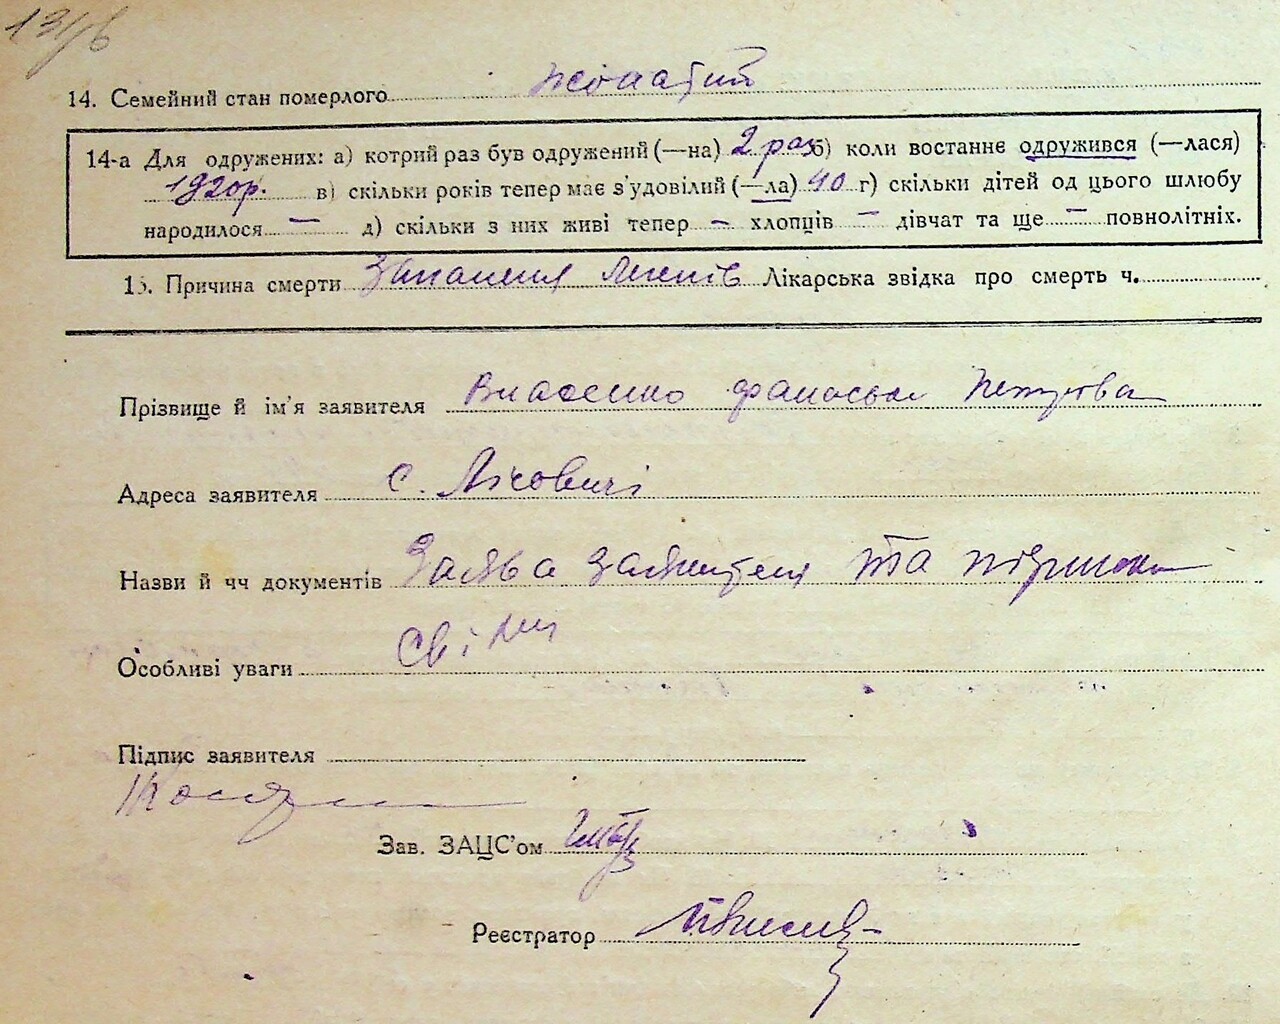 14. Семейний стан померлого жонатий
14-а Для одружених: а) котрий раз був одружений (—на) 2 раз б) коли востаннє одружився (—лася)
1920р. в) скільки років тепер має з'удовілий (—ла) 40 г) скільки дітей од цього шлюбу
народилося — д) скільки з них живі тепер — хлопців — дівчат та ще — повнолітніх.
15. Причина смерти Запаленя легенів Лікарська звідка про смерть ч.
Прізвище й ім'я заявителя Власенко Фанасья Петрова
Адреса заявителя с. Лісовичі
Назви й чч документів Заява заявителя та
Особливі уваги
Підпис заявителя
Зав. ЗАЦС'ом
Реєстратор